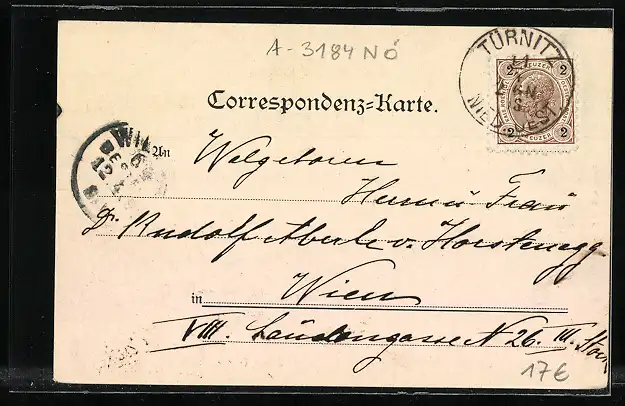 A-3184 NÖ
TÜRNITZ
11
NIED. OEST.
2 KREUZER 2
2 2
Correspondenz=Karte.
WIE
BE
An Wolgeboren
Herrn u Frau
Dr. Rudolf Aberle v. Horstenegg
in Wien
VIII. Laudongasse N 26. III. Stock
17€